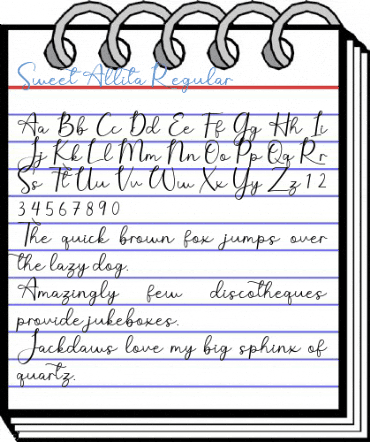 Sweet Allita Regular
Aa Bb Cc Dd Ee Ff Gg Hh Ii
Jj Kk Ll Mm Nn Oo Pp Qq Rr
Ss Tt Uu Vv Ww Xx Yy Zz 1 2
3 4 5 6 7 8 9 0
The quick brown fox jumps over
the lazy dog.
Amazingly few discotheques
provide jukeboxes.
Jackdaws love my big sphinx of
quartz.